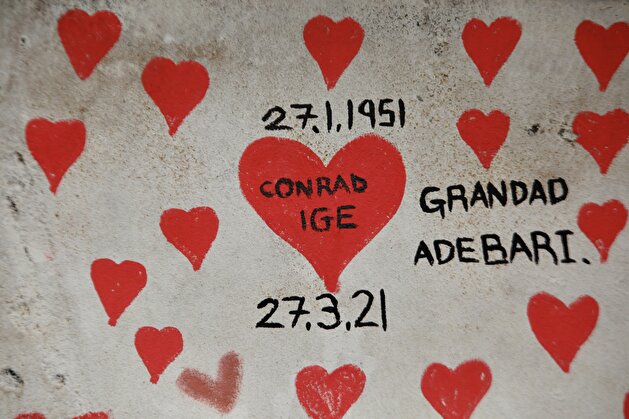 27.1.1951
CONRAD
IGE
27.3.21
GRANDAD
ADEBARI.